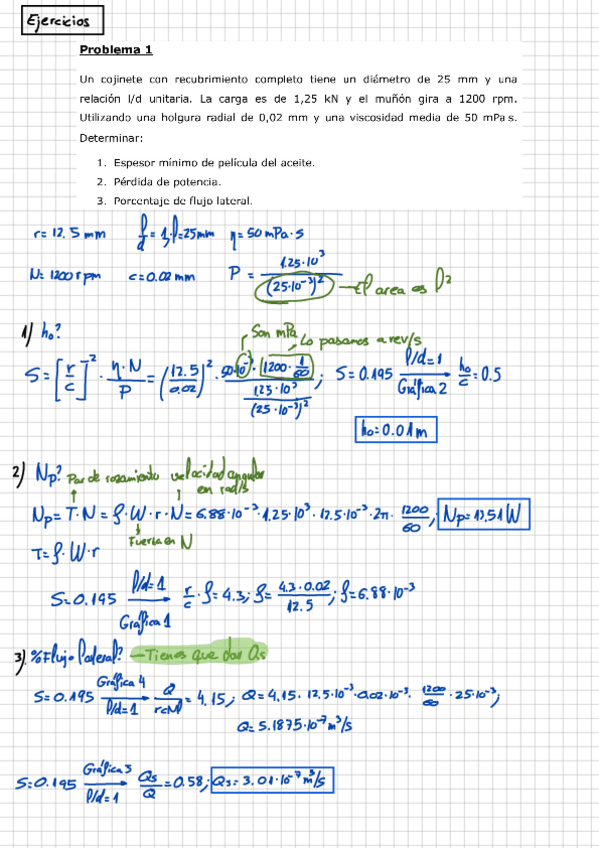 Ejercicios
Problema 1
Un cojinete con recubrimiento completo tiene un diámetro de 25 mm y una
relación l/d unitaria. La carga es de 1,25 kN y el muñón gira a 1200 rpm.
Utilizando una holgura radial de 0,02 mm y una viscosidad media de 50 mPa s.
Determinar:
1. Espesor mínimo de película del aceite.
2. Pérdida de potencia.
3. Porcentaje de flujo lateral.
r=12.5 mm l/d = 1, l=25mm η=50 mPa·s
N=1200 rpm c=0.02 mm P = 1.25·10³/(25·10⁻³)² → El area es D²
1) h₀?
Son mPa
Lo pasamos a rev/s
S=[r/c]²·η·N/P=(12.5/0.02)²·50·10⁻³·1200·1/60/(1.25·10³/(25·10⁻³)²); S=0.195 l/d=1 Gráfica 2 h₀/c=0.5
h₀=0.01m
2) Np? Par de rozamiento velocidad angular
en rad/s
Np=T·N=f·W·r·N=6.88·10⁻³·1.25·10³·12.5·10⁻³·2π·1200/60; Np=13,51W
Fuerza en N
T=f·W·r
S=0.195 l/d=1 Gráfica 1 r/c·f=4.3; f=4.3·0.02/12.5; f=6.88·10⁻³
3) %Flujo lateral? → Tienes que dar Qs
S=0.195 Gráfica 4 l/d=1 Q/rcNl=4.15; Q=4.15·12.5·10⁻³·0.02·10⁻³·1200/60·25·10⁻³;
Q=5.1875·10⁻⁷m³/s
S=0.195 Gráfica 3 l/d=1 Qs/Q=0.58; Qs=3.01·10⁻⁷m³/s